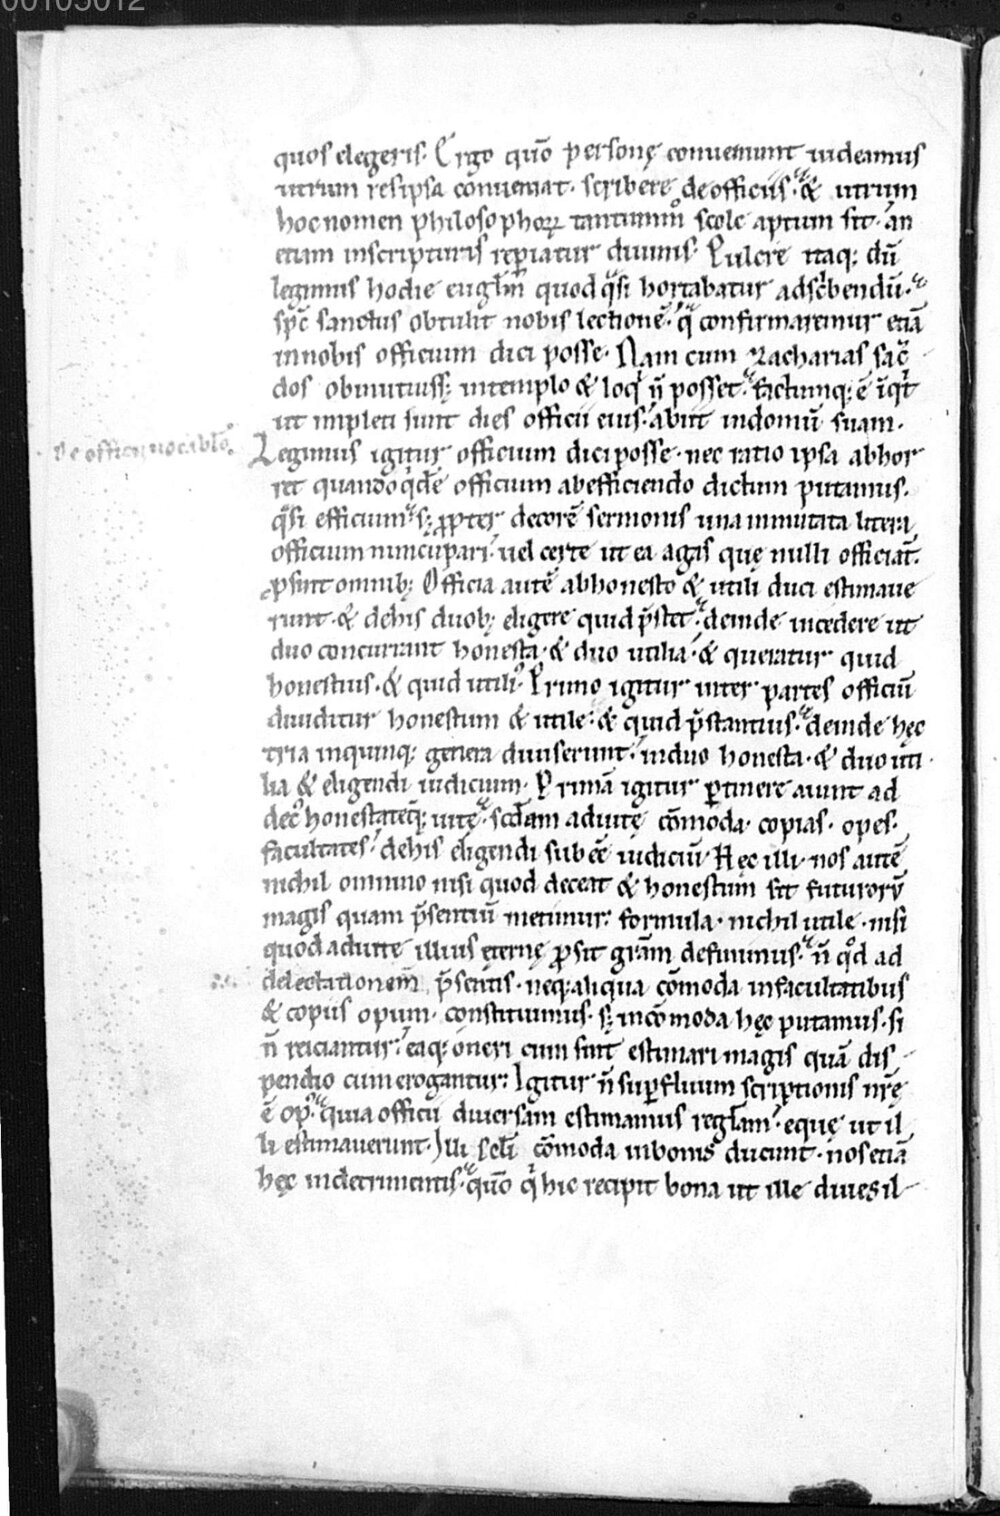 00105012
quos elegeris. Ergo quō personę conueniunt uideamus
utrum res ipsa conueniat. scribere de officiis. & utrum
hoc nomen philosophoꝝ tantummº scole aptum sit. an
etiam in scripturis repiatur diuinis. Pulcre itaq; dū
legimus hodie euglm̄ quod q̄si hortabatur ad scͥbendū.
spc̄ sanctus obtulit nobis lectionē. q̄ confirmaremur etiā
in nobis officium dici posse. Nam cum zacharias sac̄
dos obmutiuiss; in templo & loqͥ n̄ posset. factumq; ē īqͥt
ut impleti sunt dies officii eius. abiit in domū suam.
De officii uocablo.
Legimus igitur officium dici posse. nec ratio ipsa abhor
ret quando qͥdē officium ab efficiendo dictum putamus.
q̄si efficium. s; ꝓpter decorē sermonis una inmutata litera
officium nuncupari. uel certe ut ea agas quę nulli officiāt.
ꝓsint omnib; Officia autē ab honesto & utili duci estimaue
runt. & de his duob; eligere quid p̄stet. deinde incedere ut
duo concurrant honesta. & duo utilia. & queratur quid
honestius. & quid utiliꝰ. Primo igitur inter partes officiū
diuiditur honestum & utile. & quid p̄stantius. deinde hęc
tria in quinq; genera diuiserunt. in duo honesta. & duo uti
lia & eligendi iudicium. Primā igitur ꝑtinere aiunt ad
decꝰ honestatēq; uitę. scdam ad uitę cōmoda. copias. opes.
facultates. de his eligendi sub eē iudiciū. Hęc illi. nos autē
nichil omnino nisi quod deceat & honestum sit futuroꝝ
magis quam p̄sentiū metimur: formula. nichil utile. nisi
quod ad uitę illius eternę ꝓsit gram̄ definimus. n̄ qd̄ ad
delectationem p̄sentis. neq; aliqua cōmoda in facultatibus
& copiis opum. constituimus. s; incōmoda hęc putamus. si
n̄ reiciantur. eaq; oneri cum sint estimari magis quā dis
pendio cum erogantur: Igitur n̄ suꝑfluum scriptionis nrę̄
ē opꝰ. quia officii diuersam estimamus reglam. eque ut il
li estimauerunt. Illi scli cōmoda in bonis ducunt. nos etiā
hęc in detrimentis. quō qͥ hic recipit bona ut ille diues il